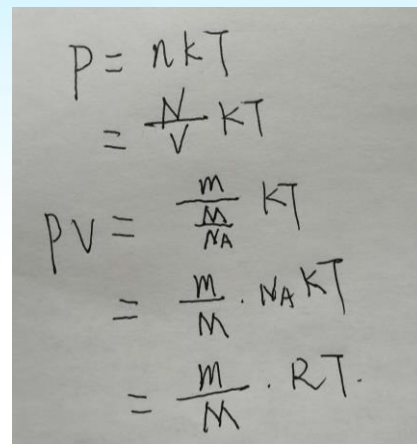 P = nkT
= N/V kT
PV = m/(M/NA) kT
= m/M · NA kT
= m/M · RT.